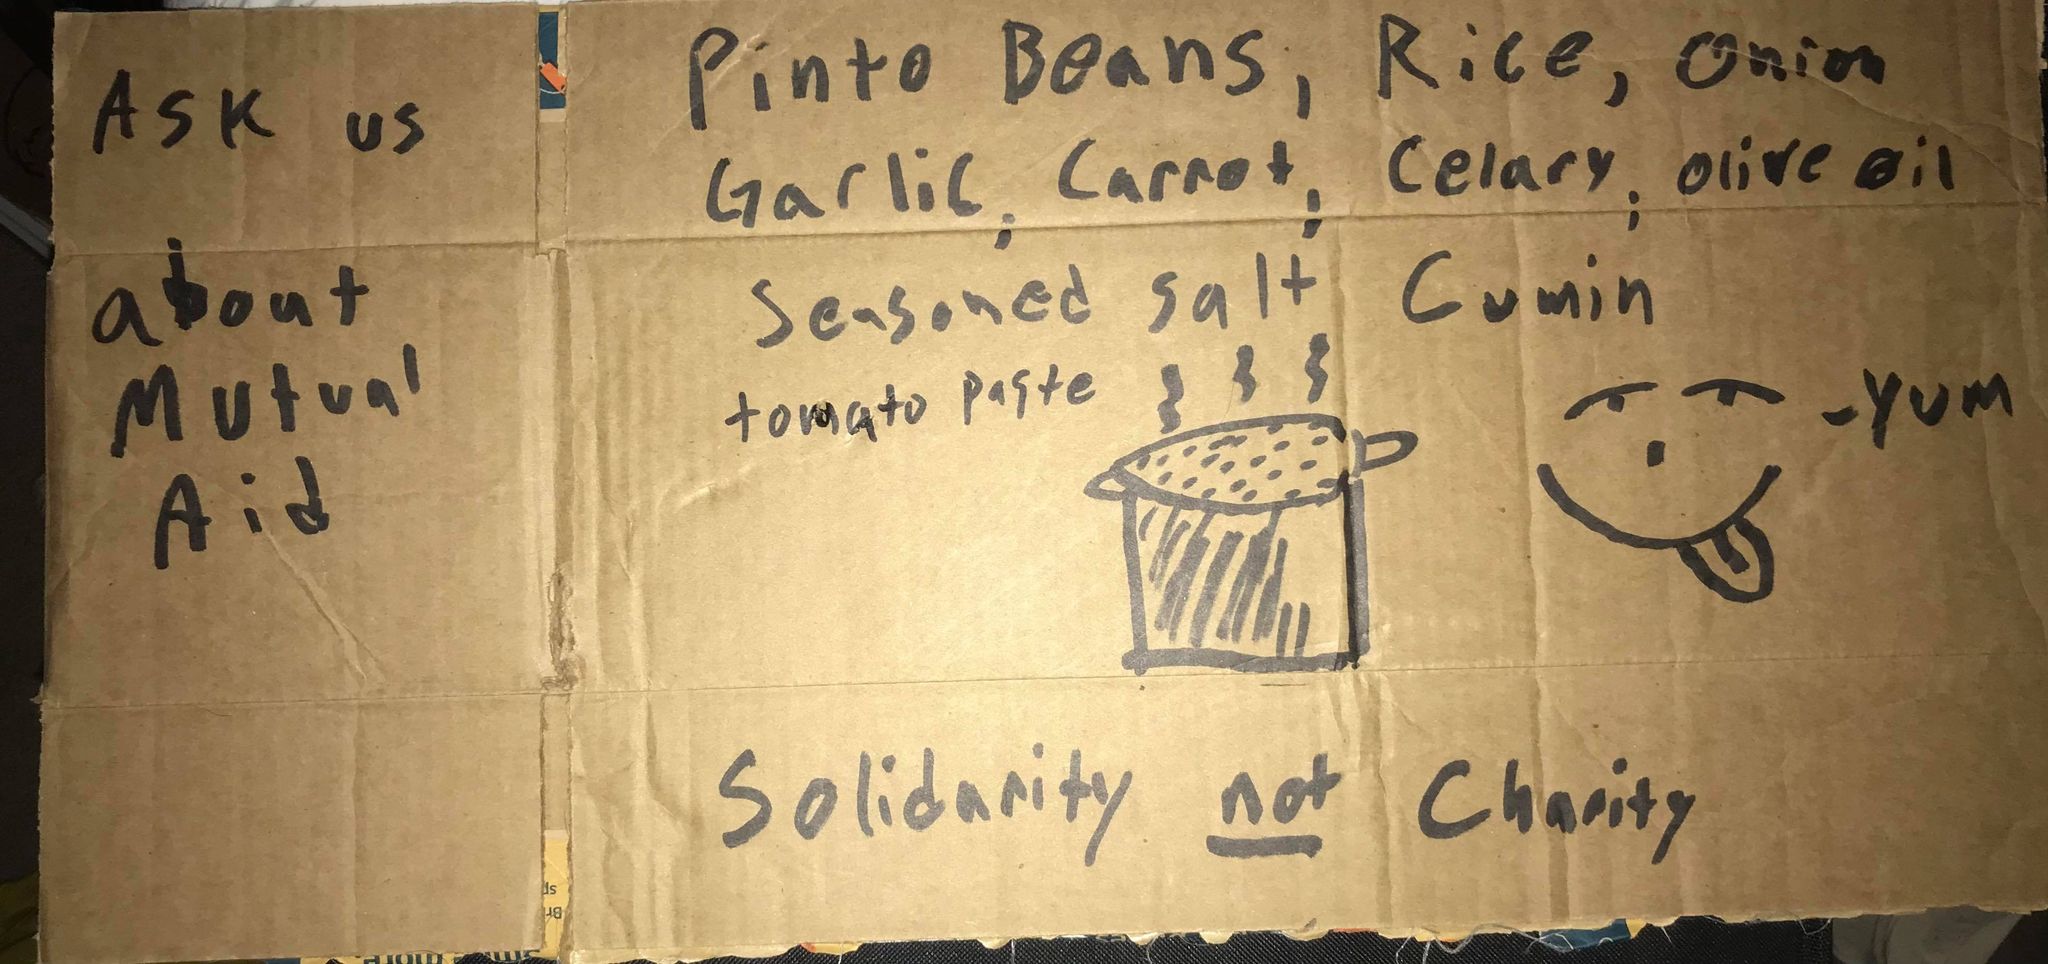 Ask us
about
Mutual
Aid
Pinto Beans, Rice, Onion
Garlic, Carrot, Celary, olive oil
Seasoned salt Cumin
tomato paste
-YUM
Solidarity not Charity